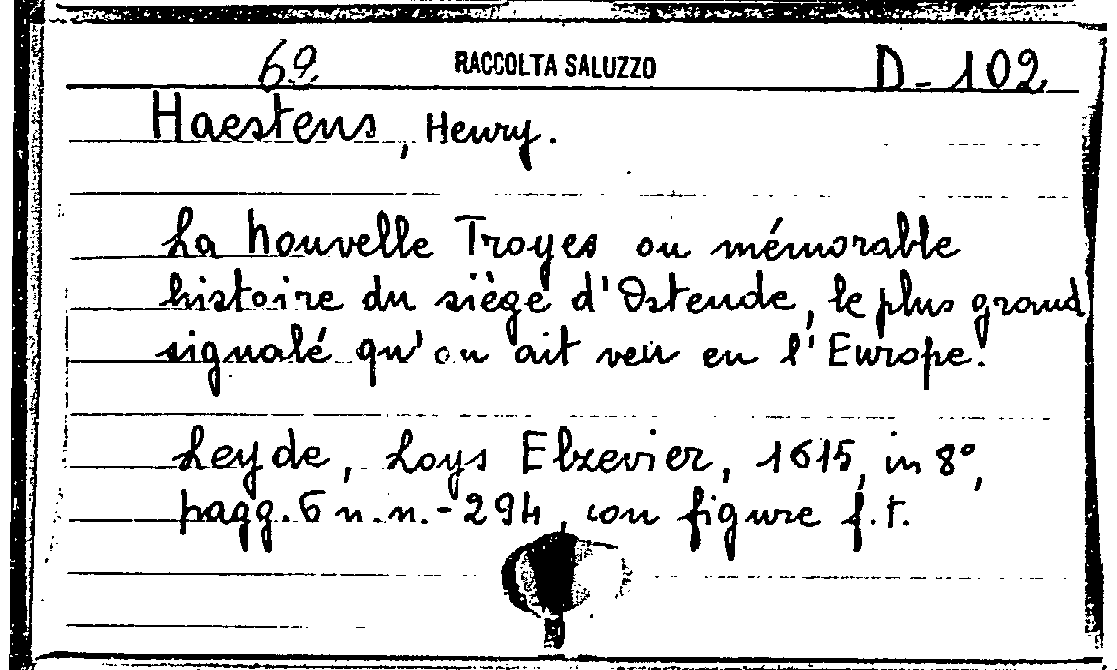 69 RACCOLTA SALUZZO D-102
Haestens, Henry.
La Nouvelle Troyes ou mémorable
histoire du siège d'Ostende, le plus grand
signalé qu'on ait veu en l'Europe.
Leyde, Loys Elzevier, 1615, in 8°,
pagg. 6 n.n.-294, con figure f.t.